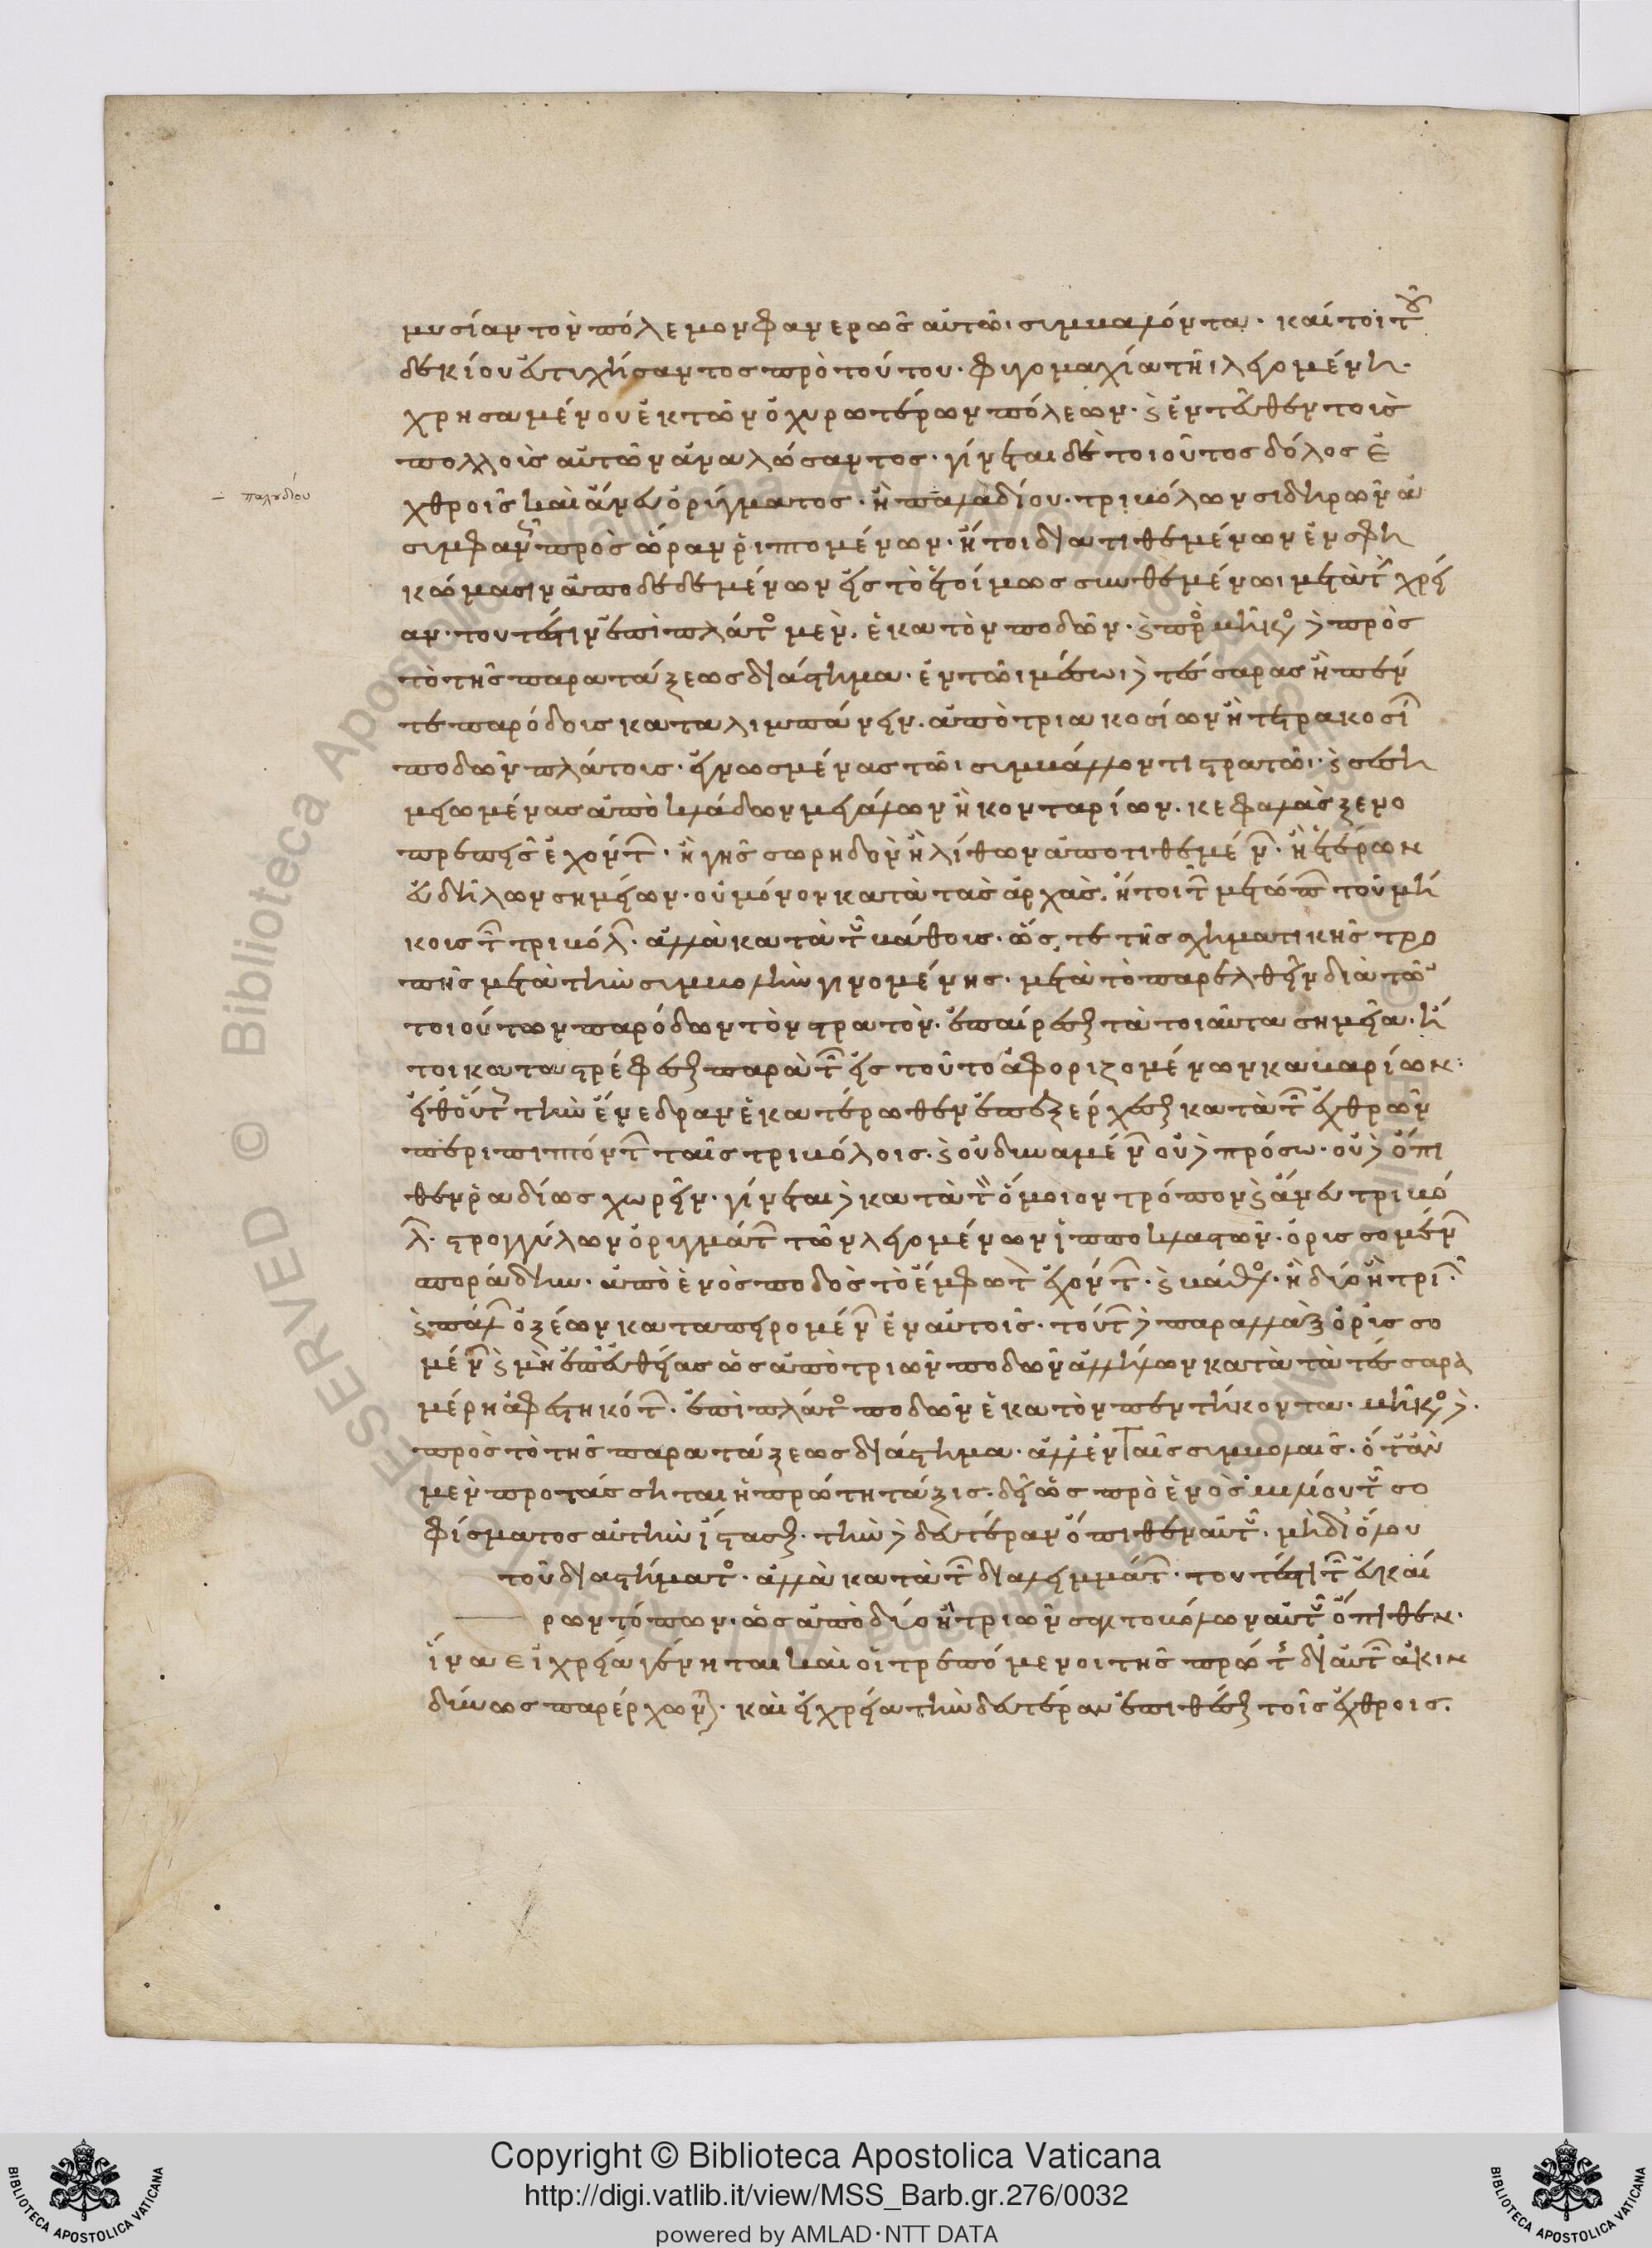 μυσίαν τὸν πόλεμον φανερῶς αὐτῶι συμβαλόντα· καίτοι τοῦ
δεκίου εὐτυχήσαντος πρὸ τούτου· φυγομαχία τῆι λεγομένη·
χρησαμένου ἐκ τῶν ὀχυρωτέρων πόλεων· καὶ ἐντεῦθεν τοὺς
πολλοὺς αὐτῶν ἀναλώσαντος· γίνεται δὲ τοιοῦτος δόλος ἐ
παλουδίου
χθροῖς καὶ ἄνευ ὀρύγματος· ἢ παλουδίου· τριβόλων σιδηρῶν ἀ
συμφανῶς πρὸς ὥραν ῥιπτομένων· ἤτοι διατιθεμένων ἐν σφη
κώμασιν ἀποδεδεμένων εἰς τὸ ἑτοίμως συντιθεμένων μετὰ τὴν χρεί
αν· τουτέστιν ἐπὶ πλάτος μὲν· ἑκατὸν ποδῶν· καὶ πρὸς μῆκος δὲ πρὸς
τὸ τῆς παρατάξεως διάστημα· ἐν τῶι μέσωι δὲ τέσσαρας ἢ πέν
τε παρόδους καταλιμπάνειν· ἀπὸ τριακοσίων ἢ τετρακοσί
ποδῶν πλάτους· ἐγνωσμένας τῶι συμβάλλοντι στρατῶι· καὶ σεση
μειωμένας ἀπὸ κλάδων μεγάλων ἢ κονταρίων· κεφαλὰς ξενο
πρεπεῖς ἐχόντων· ἢ γῆς σωρηδὸν ἢ λίθων ἀποτιθεμένων· ἢ ἑτέρων
εὐδήλων σημείων· οὐ μόνον κατὰ τὰς ἀρχὰς· ἤτοι τῶν μετώπων τοῦ μή
κους τῶν τριβόλων· ἀλλὰ κατὰ τοῦ βάθους· ὥστε τῆς σχηματικῆς τρο
πῆς μετὰ τὴν συμβολὴν γινομένης· μετὰ τὸ παρελθεῖν διὰ τῶν
τοιούτων παρόδων τὸν στρατὸν· ἐπαίρεσθαι τὰ τοιαῦτα σημεῖα· ἤ
τοι καταστρέφεσθαι παρὰ τῶν εἰς τοῦτο ἀφοριζομένων καβαλλαρίων·
εἶθ' οὕτως τὴν ἔνεδραν ἑκατέρωθεν ἐπεξέρχεσθαι κατὰ τῶν ἐχθρῶν
περιπιπτόντων ταῖς τριβόλοις· καὶ οὐ δυναμένων οὐδὲ πρόσω· οὐδὲ ὄπι
θεν ῥαδίως χωρεῖν· γίνεται δὲ κατὰ τὸν ὅμοιον τρόπον καὶ ἄνευ τριβό
λων· στρογγύλων ὀρυγμάτων τῶν λεγομένων ἱπποκλαστῶν· ὀρυσσομένων
σποράδην· ἀπὸ ἑνὸς ποδὸς τὸ ἔμφωτον ἐχόντων· καὶ βάθος· ἢ δύο ἢ τριῶν
καὶ πάλων ὀξέων καταπειρομένων ἐν αὐτοῖς· τούτων δὲ παραλλὰξ ὀρυσσο
μένων καὶ μὴ ἐπ' εὐθείας ὡς ἀπὸ τριῶν ποδῶν ἀλλήλων κατὰ τὰ τέσσαρα
μέρη ἀφεστηκότων· ἐπὶ πλάτος ποδῶν ἑκατὸν πεντήκοντα· μῆκος δὲ·
πρὸς τὸ τῆς παρατάξεως διάστημα· ἀλλ' ἐν ταῖς συμβολαῖς· ὅταν
μὲν προτάσσηται ἡ πρώτη τάξις· δεῖ ὡς πρὸ ἑνὸς μιλίου τοῦ σο
φίσματος αὐτὴν ἵστασθαι· τὴν δὲ δευτέραν ὄπιθεν αὐτοῦ· μὴ δι' ὅλου
τοῦ διαστήματος· ἀλλὰ κατὰ τῶν διαλειμμάτων· τουτέστι τῶν εὐκαί
ρων τόπων· ὡς ἀπὸ δύο ἢ τριῶν σαγιττοβόλων αὐτοῦ ὄπιθεν·
ἵνα εἰ χρεία γένηται καὶ οἱ τρεπόμενοι τῆς πρώτης δι' αὐτῶν ἀκιν
δύνως παρέρχωνται· καὶ εἰ χρεία τὴν δευτέραν ἐπιθέσθαι τοῖς ἐχθροῖς.
Copyright © Biblioteca Apostolica Vaticana
http://digi.vatlib.it/view/MSS_Barb.gr.276/0032
powered by AMLAD·NTT DATA